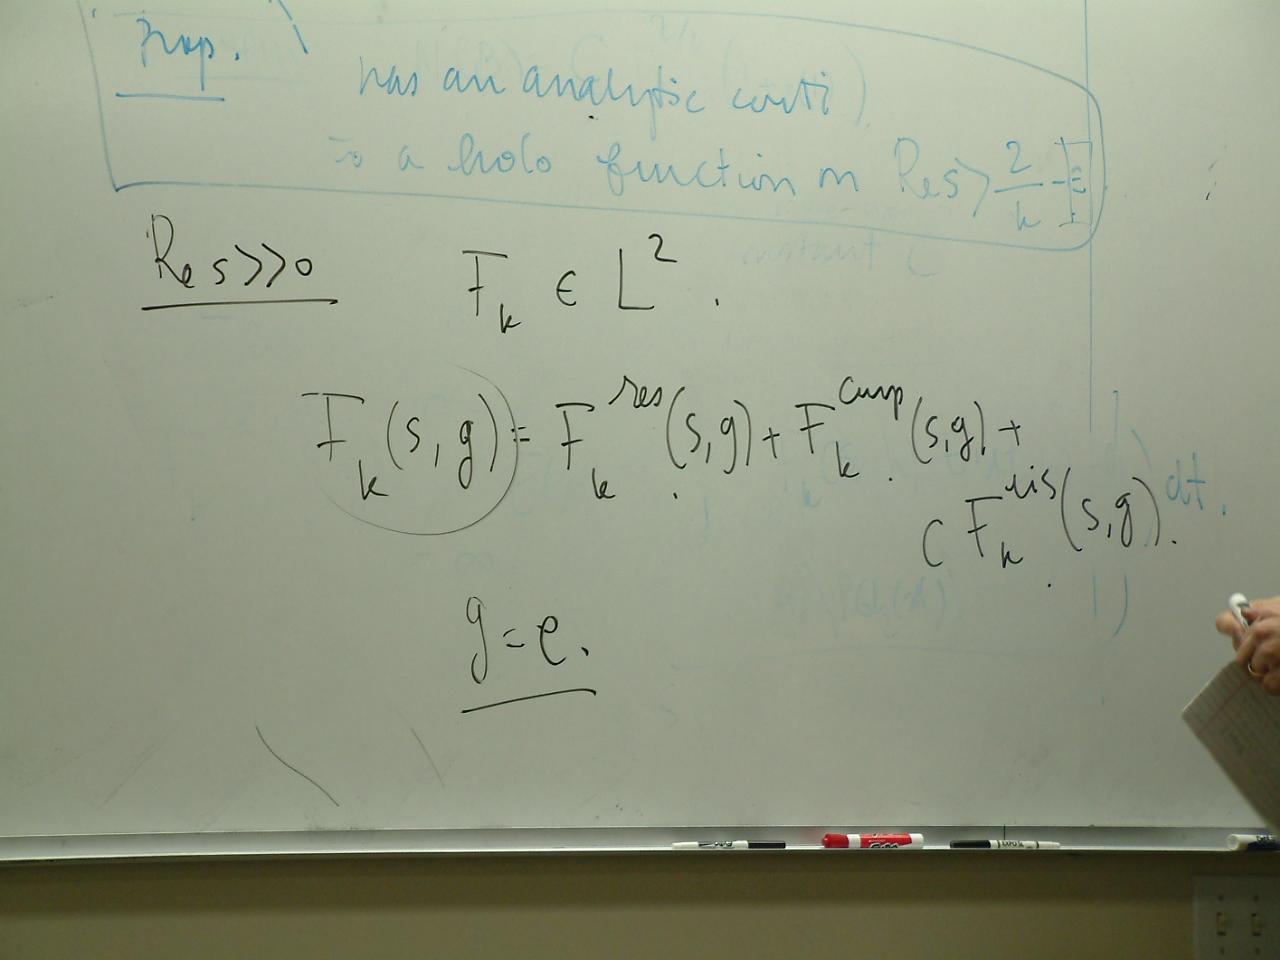 Prop.
has an analytic conti)
to a holo function on Re s > 2/k - ε
Re s >> 0
F_k ∈ L^2 .
F_k (s, g) = F_k^res (s, g) + F_k^cusp (s, g) +
C F_k (s, g) .
dt.
g = e.